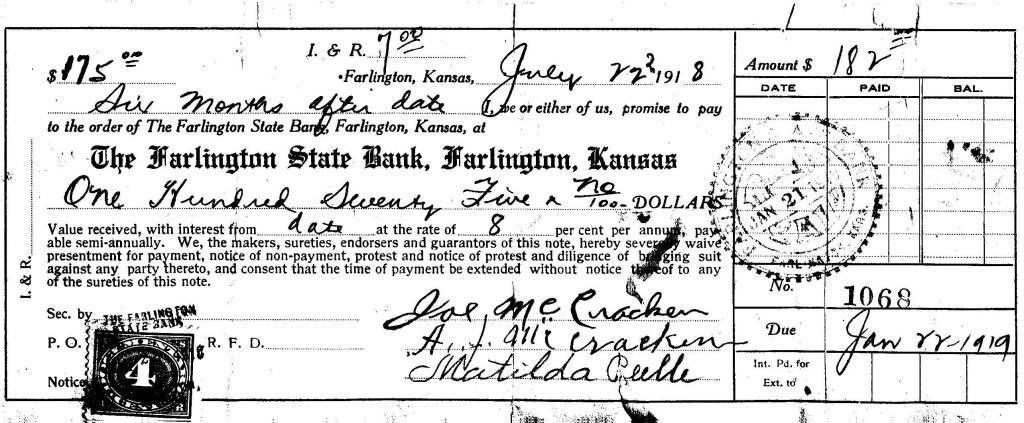 I. & R. 7.00
$175.00 Farlington, Kansas, July 22 1918
Six Months after date I, we or either of us, promise to pay
to the order of The Farlington State Bank, Farlington, Kansas, at
The Farlington State Bank, Farlington, Kansas
One Hundred Seventy Five & no/100 DOLLARS
Value received, with interest from date at the rate of 8 per cent per annum, pay-
able semi-annually. We, the makers, sureties, endorsers and guarantors of this note, hereby severally waive
presentment for payment, notice of non-payment, protest and notice of protest and diligence of bringing suit
against any party thereto, and consent that the time of payment be extended without notice thereof to any
of the sureties of this note.
I. & R.
Sec. by
P. O. R. F. D.
Notice
THE FARLINGTON
STATE BANK
4
Joe McCracken
A. J. McCracken
Matilda Peelle
Amount $ 182.00
DATE PAID BAL.
JAN 21
No. 1068
Due Jan 22 1919
Int. Pd. for
Ext. to